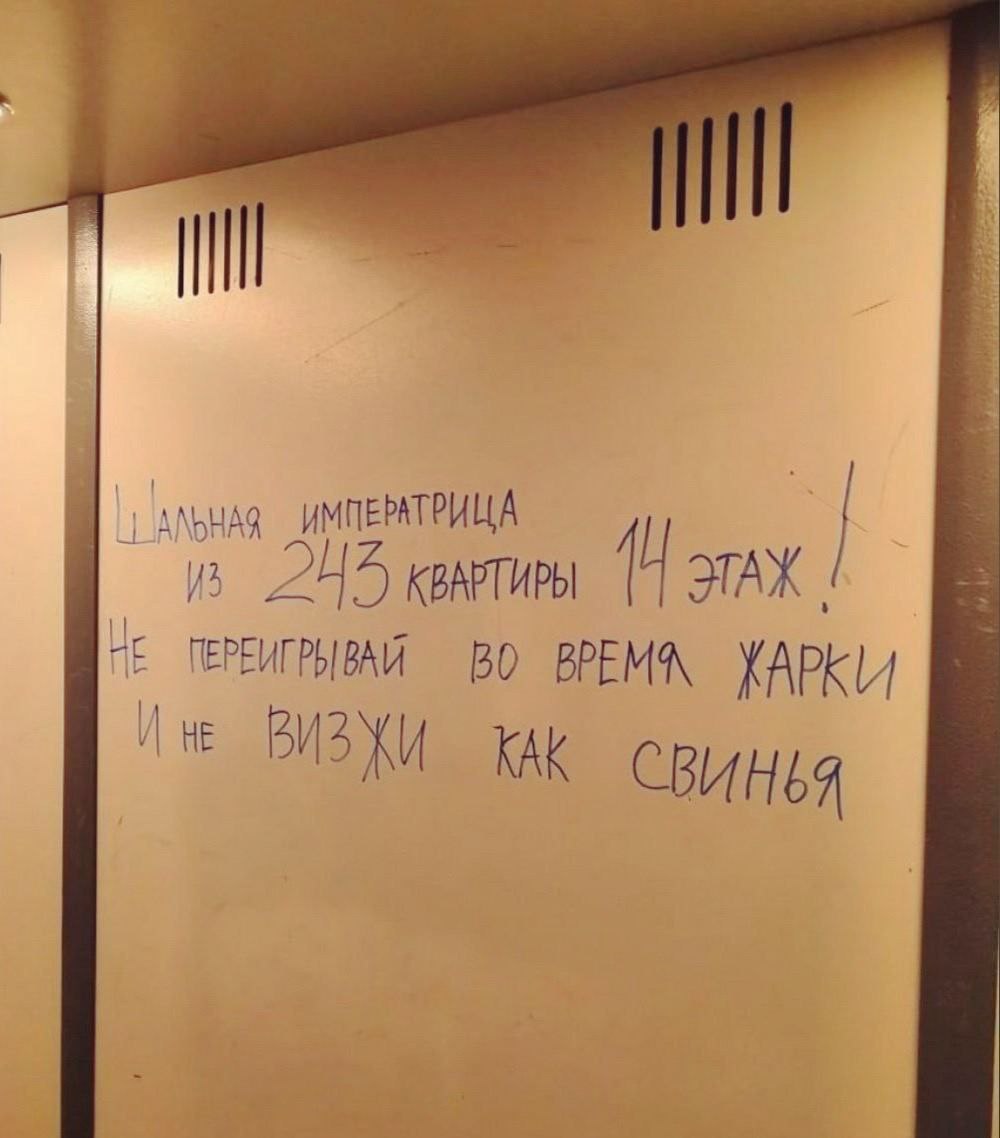 Шальная императрица
из 243 квартиры 14 этаж!
Не переигрывай во время жарки
И не визжи как свинья